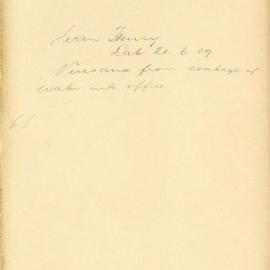 Henry
Date 21. 6. 09
Nuisance from soakage of
water into office